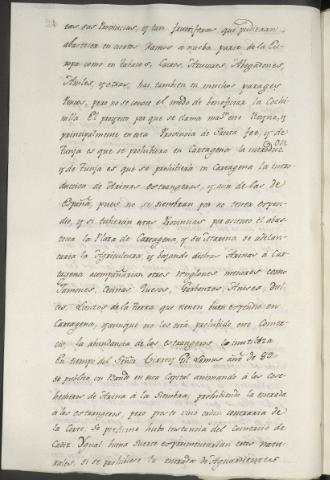 cas sus Provincias, y tan fructiferas que pudieran
abastecer en ciertos Ramos á nueba parte de la Eu-
ropa como en Tabacos, Cacaos, Azucares, Algodones,
Añiles, y otros, hai tambien en muchos parages
Tunas, pero no se conoce el modo de beneficiar la Cochi-
nilla. El proyecto por que se clama mas en este Reyno, y
principalmente en esta Provincia de Santa Feé, y de
Tunja es que se prohibiera en Cartagena la introduc-
y de Tunja es que se prohibiera en Cartagena la intro-
duccion de Harinas estrangeras, y aun de las de
España, pues no se siembran por no tener espen-
dio, y si tubieran estas Provincias por asiento el abas-
tecer la Plaza de Cartagena, y su Marina se adelan-
taria la Agricultura, y bajando dichas Harinas á Car-
tagena acompañarian otros renglones menudos como
Jamones, Cecinas, Quesos, Garbanzos, Anises, Dul-
ces, Lienzos de la tierra que tienen buen espendio en
Cartagena, y aunque no les está prohibido este Comer-
cio, la abundancia de los estrangeros lo inutiliza
En tiempo del Señor Virrey Gil Lemus año de 89
se publicó un Bando en esta Capital animando á los cose-
cheros de Harina á la siembra, prohibiendo la entrada
á las estrangeras, pero presto vino orden contraria de
la Corte. Se presume hubo instancia del comercio de
Cadiz. Ygual buena suerte experimentarian estos natu-
rales, si se prohibiese la entrada de Aguardientes